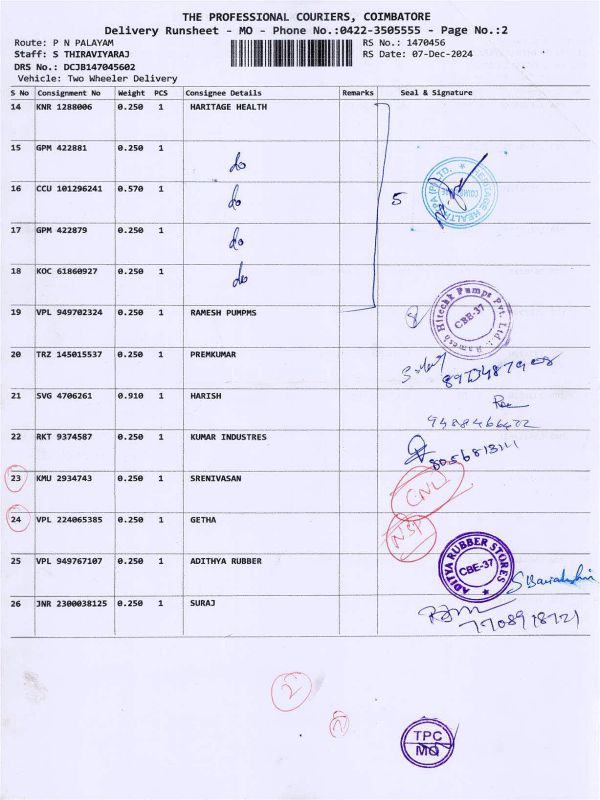 THE PROFESSIONAL COURIERS, COIMBATORE
Delivery Runsheet - MO - Phone No.:0422-3505555 - Page No.:2
Route: P N PALAYAM
RS No.: 1470456
Staff: S THIRAVIYARAJ
RS Date: 07-Dec-2024
DRS No.: DCJB147045602
Vehicle: Two Wheeler Delivery
S No Consignment No Weight PCS Consignee Details Remarks Seal & Signature
14 KNR 1288006 0.250 1 HARITAGE HEALTH
15 GPM 422881 0.250 1 do
16 CCU 101296241 0.570 1 do 5
17 GPM 422879 0.250 1 do
18 KOC 61860927 0.250 1 do
19 VPL 949702324 0.250 1 RAMESH PUMPMS
Ramesh Hitechk Pumps Pvt. Ltd. CBE-37
20 TRZ 145015537 0.250 1 PREMKUMAR
21 SVG 4706261 0.910 1 HARISH
9488466422
22 RKT 9374587 0.250 1 KUMAR INDUSTRES
23 KMU 2934743 0.250 1 SRENIVASAN CNL
24 VPL 224065385 0.250 1 GETHA NSP
25 VPL 949767107 0.250 1 ADITHYA RUBBER
ADITYA RUBBER STORES CBE-37
26 JNR 2300038125 0.250 1 SURAJ
7708918721
2
TPC
MO